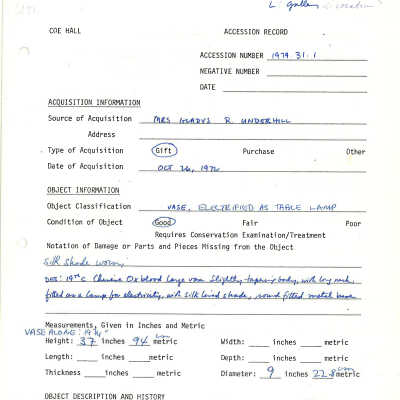 L. Gallery
COE HALL
ACCESSION RECORD
ACCESSION NUMBER 1979.31.1
NEGATIVE NUMBER
DATE
ACQUISITION INFORMATION
Source of Acquisition MRS GLADYS R UNDERHILL
Address
Type of Acquisition Gift Purchase Other
Date of Acquisition OCT 26, 1976
OBJECT INFORMATION
Object Classification VASE, ELECTRIFIED AS TABLE LAMP
Condition of Object Good Fair Poor
Requires Conservation Examination/Treatment
Notation of Damage or Parts and Pieces Missing from the Object
Silk Shade worn,
DES: 19th C Chinese Oxblood large vase Slightly tapering body, with long neck,
fitted as a lamp for electricity, with silk lined shade, round fitted metal base
Measurements, Given in Inches and Metric
VASE ALONE: 19¼"
Height: 37 inches 94 cm metric Width: inches metric
Length: inches metric Depth: inches metric
Thickness inches metric Diameter: 9 inches 22.8 cm metric
OBJECT DESCRIPTION AND HISTORY